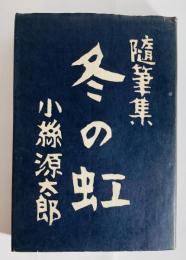 隨筆集
冬の虹
小絲源太郎